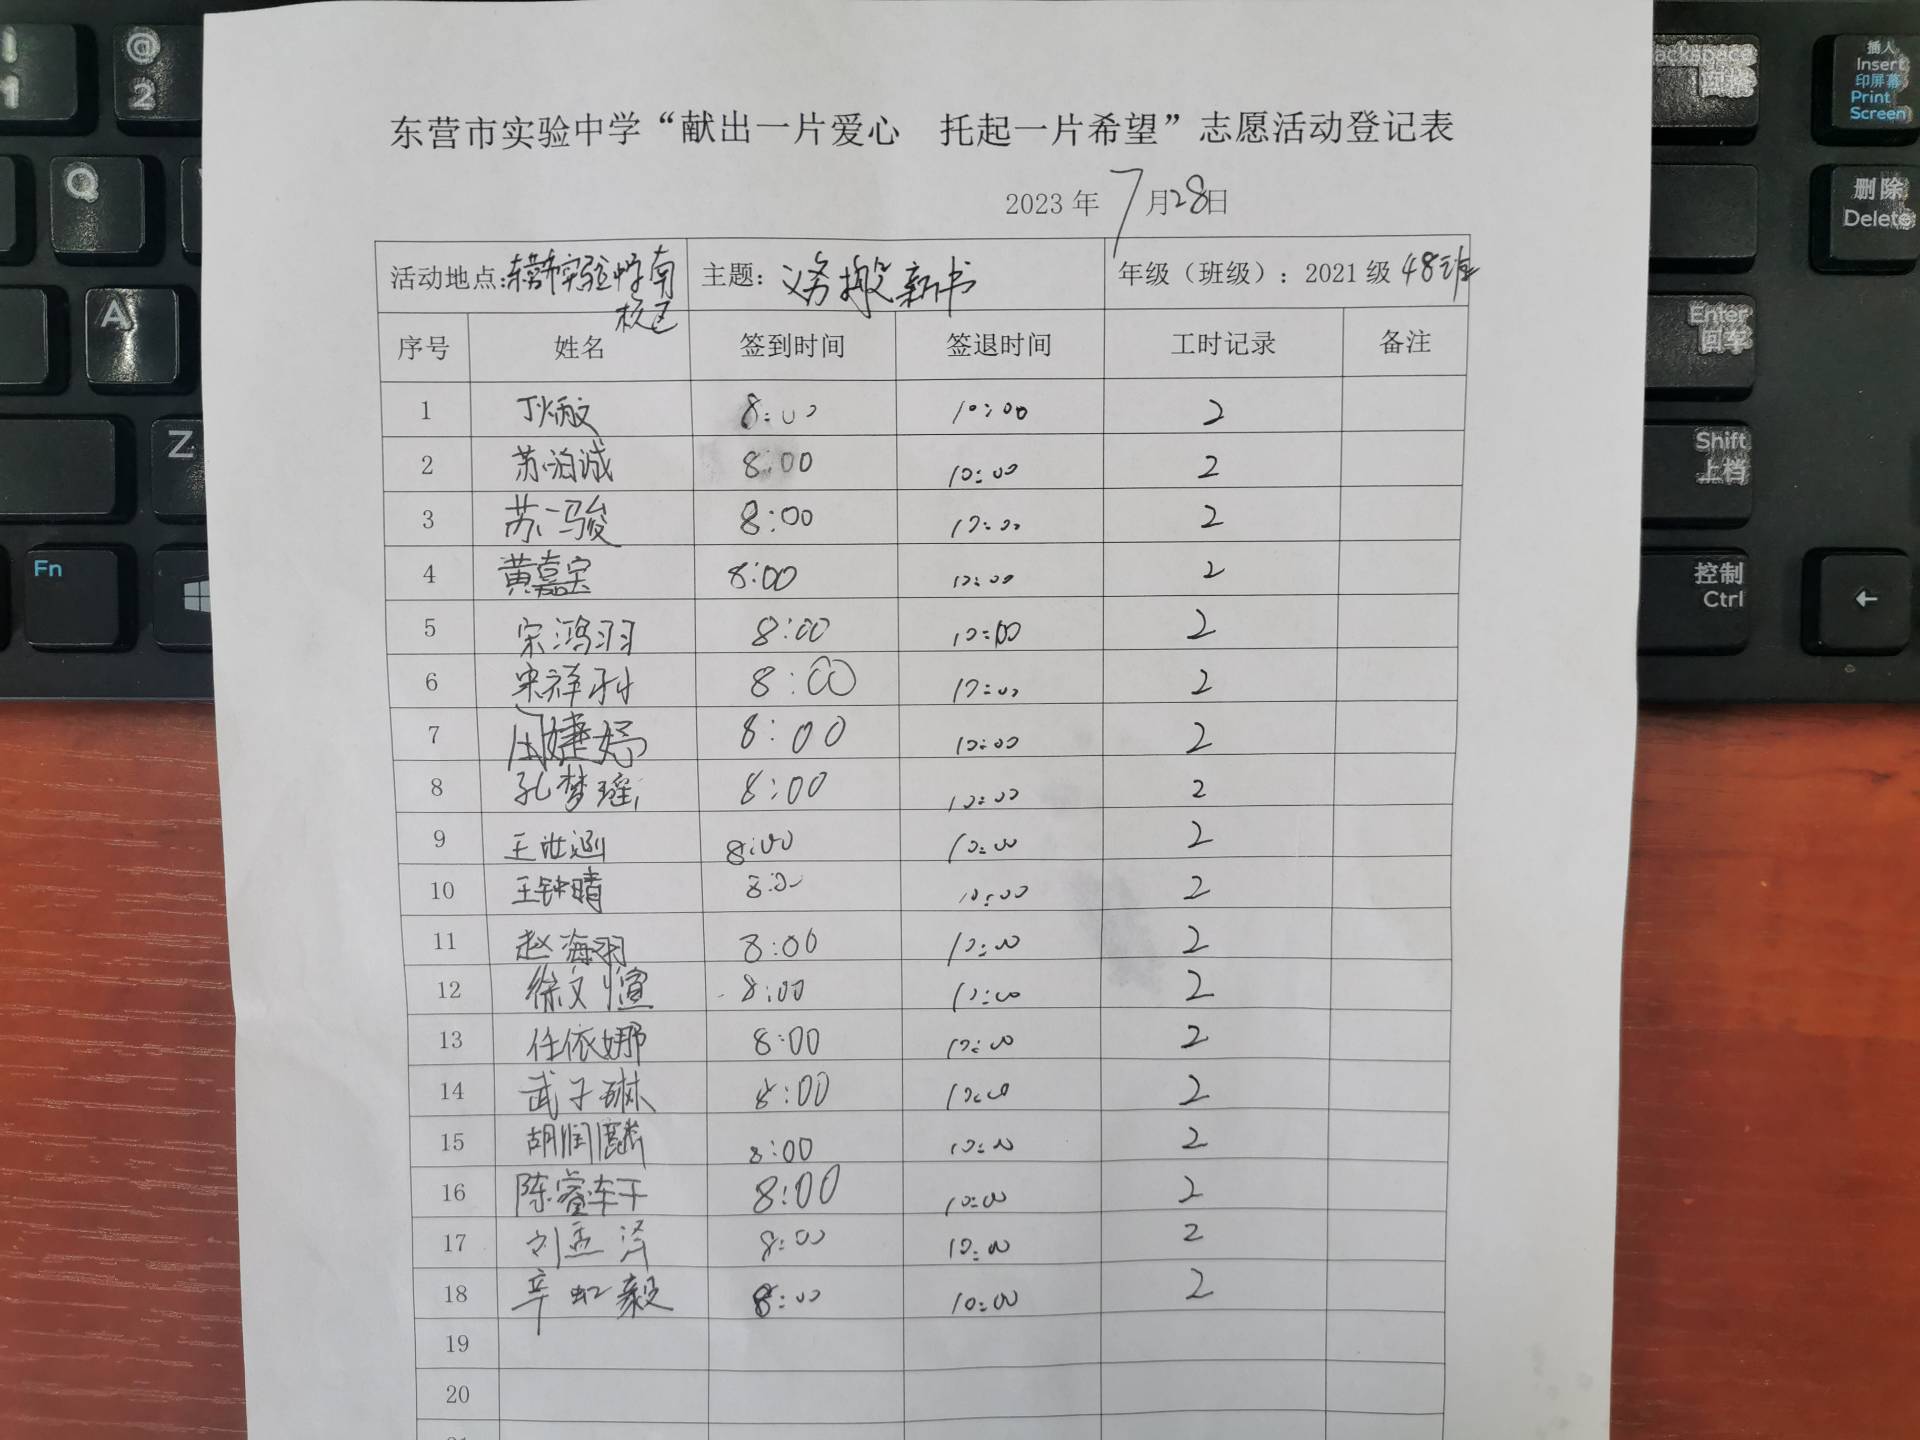 东营市实验中学“献出一片爱心 托起一片希望”志愿活动登记表
2023 年 7 月 28 日
活动地点:东营市实验中学南校区 主题: 义务搬新书 年级（班级）: 2021 级 48班
序号 姓名 签到时间 签退时间 工时记录 备注
1 丁炳文 8:00 10:00 2
2 苏诚 8:00 10:00 2
3 苏一骏 8:00 10:00 2
4 黄嘉宝 8:00 10:00 2
5 宋鸿羽 8:00 10:00 2
6 宋祥利 8:00 10:00 2
7 周婕妤 8:00 10:00 2
8 孔梦瑶 8:00 10:00 2
9 王涵 8:00 10:00 2
10 王钟晴 8:00 10:00 2
11 赵海羽 8:00 10:00 2
12 徐文煊 8:00 10:00 2
13 任依娜 8:00 10:00 2
14 武子琳 8:00 10:00 2
15 胡润麟 8:00 10:00 2
16 陈睿 8:00 10:00 2
17 刘孟泽 8:00 10:00 2
18 辛虹毅 8:00 10:00 2
19
20
! 1
@ 2
Q
A
Z
Fn
ackspace 回格
插入 Insert
印屏幕 Print Screen
删除 Delete
Enter 回车
Shift 上档
控制 Ctrl
←